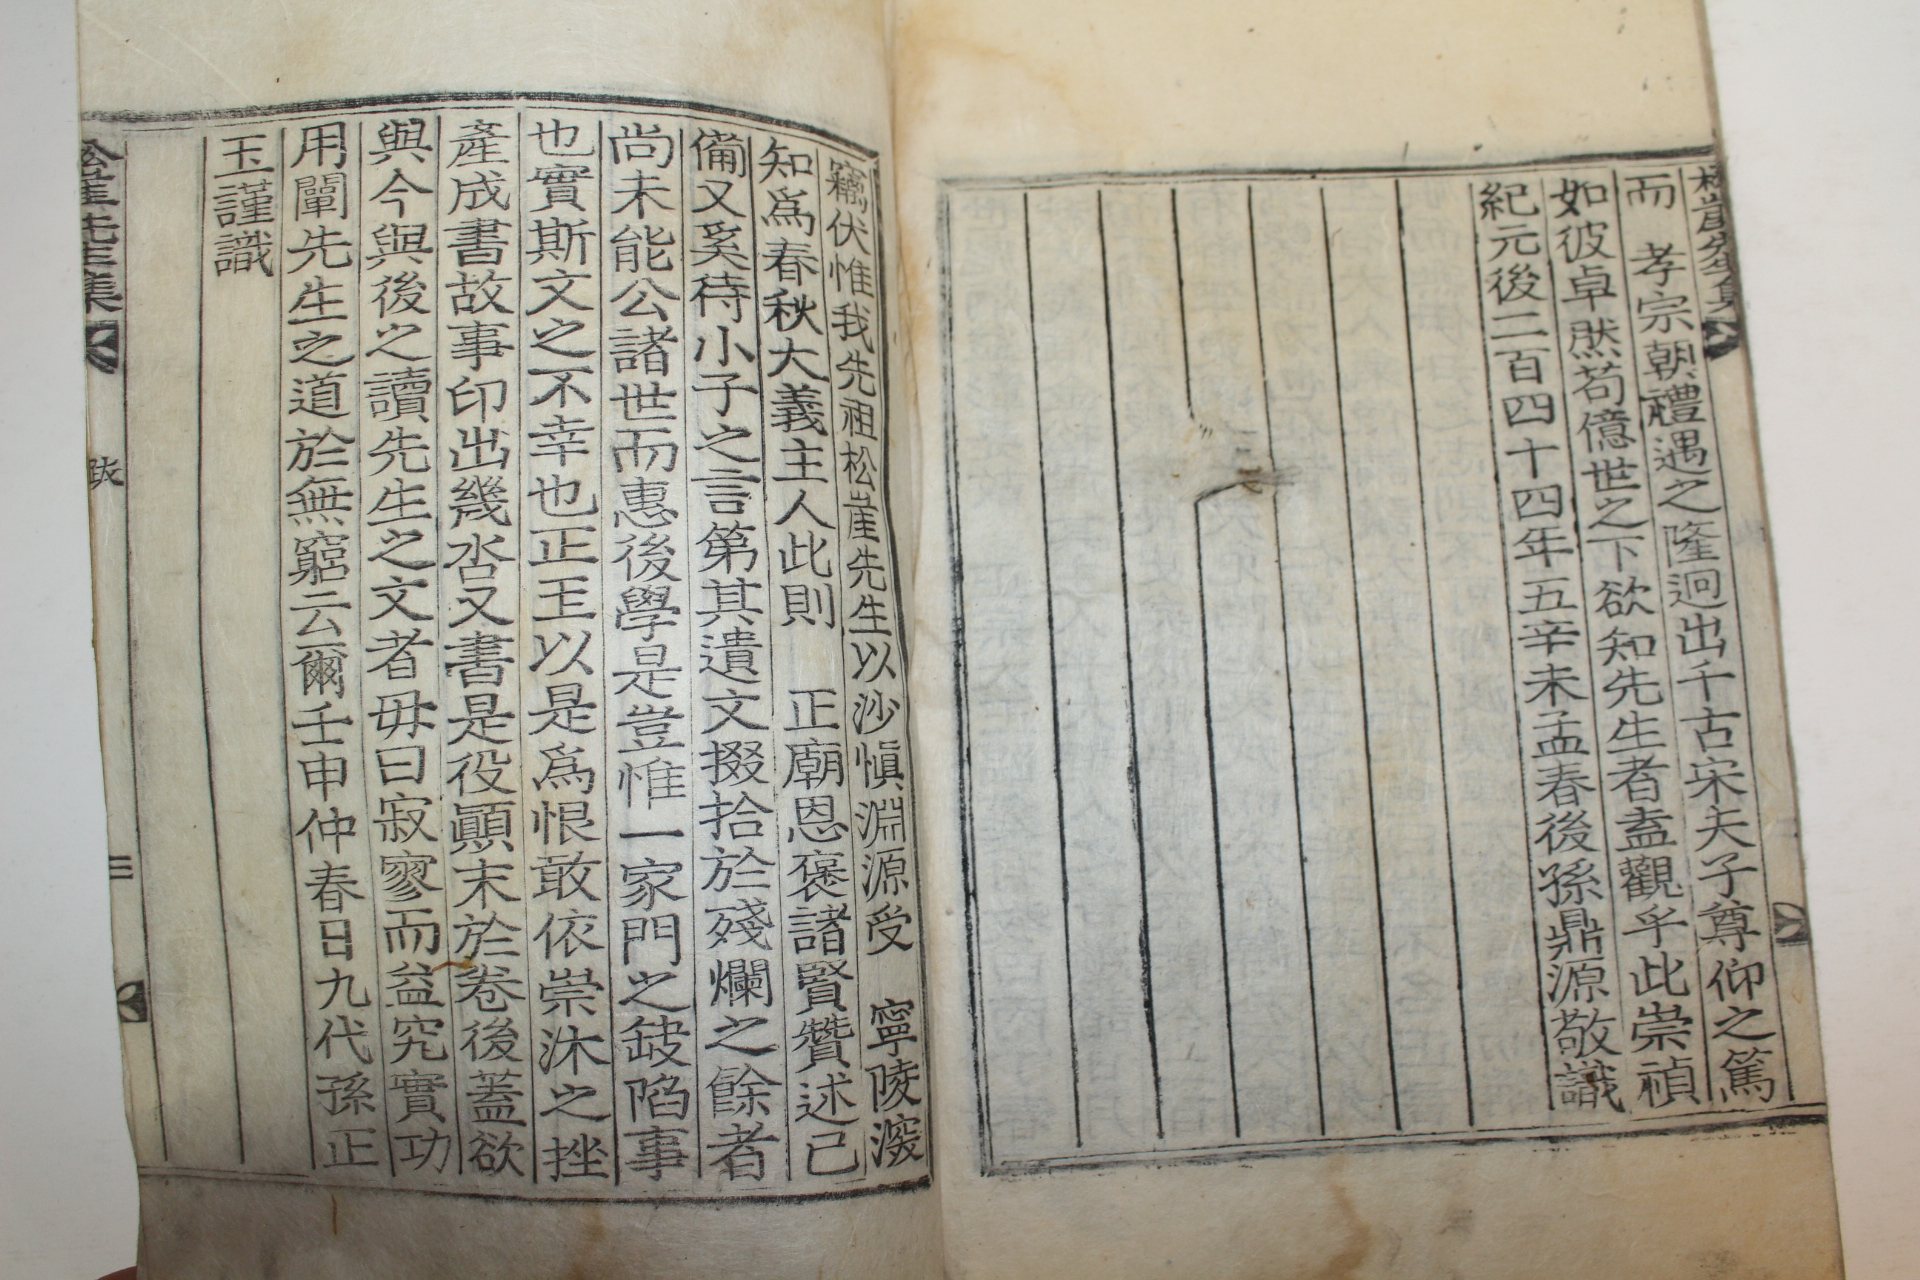 而 孝宗朝禮遇之隆迥出千古宋夫子尊仰之篤
如彼卓然苟億世之下欲知先生者盍觀乎此崇禎
紀元後二百四十四年五辛未孟春後孫鼎源敬識
竊伏惟我先祖松崖先生以沙愼淵源受 寧陵深
知爲春秋大義主人此則 正廟恩褒諸賢贊述已
備又奚待小子之言第其遺文掇拾於殘爛之餘者
尚未能公諸世而惠後學是豈惟一家門之缺陷事
也實斯文之不幸也正玉以是爲恨敢依崇沐之挫
產成書故事印出幾呇又書是役顚末於卷後蓋欲
與今與後之讀先生之文者毋曰寂寥而益究實功
用闡先生之道於無窮云爾壬申仲春日九代孫正
玉謹識
松崖先生集 跋 三